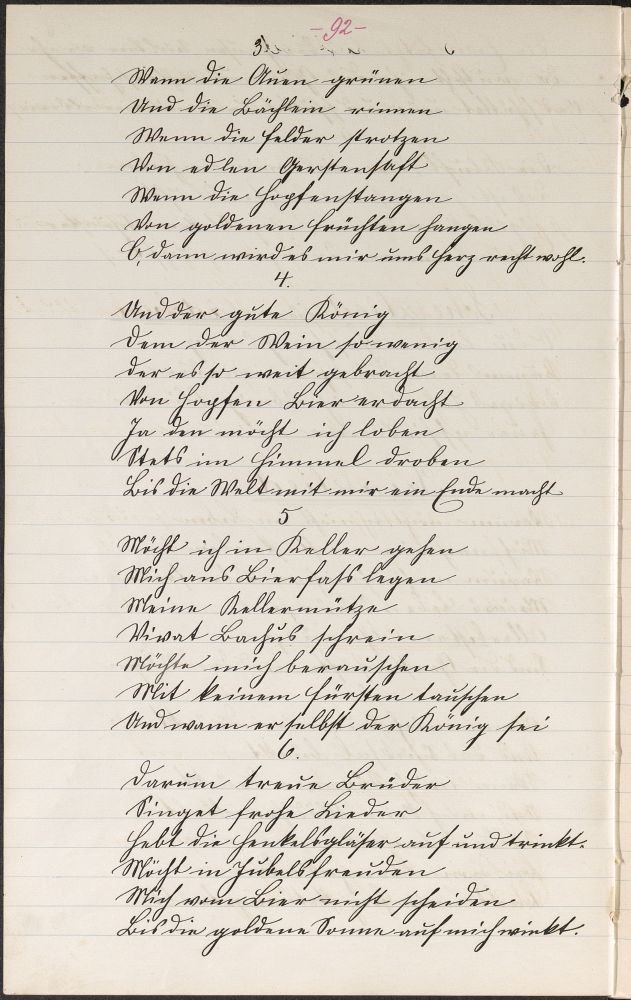 -92-
3.
Wenn die Auen grünen
Und die Bächlein rinnen
Wenn die Felder strotzen
Von edlen Gerstensaft
Wenn die Hopfenstangen
Von goldenen Früchten hangen
O, dann wird es mir ums Herz recht wohl.
4.
Und der gute König
Dem der Wein so wenig
Der es so weit gebracht
Von Hopfen Bier erdacht
Ja den möcht ich loben
Stets im Himmel droben
Bis die Welt mit mir ein Ende macht
5
Möcht ich in Keller gehen
Mich ans Bierfass legen
Meine Kellermütze
Vivat Bachus schrein
Möchte mich berauschen
Mit keinem Fürsten tauschen
Und wann er selbst der König sei
6.
Darum treue Brüder
Singet frohe Lieder
Hebt die Henkelsgläser auf und trinkt.
Möcht in Jubelsfreuden
Mich vom Bier nicht scheiden
Bis die goldene Sonne auf mich winkt.